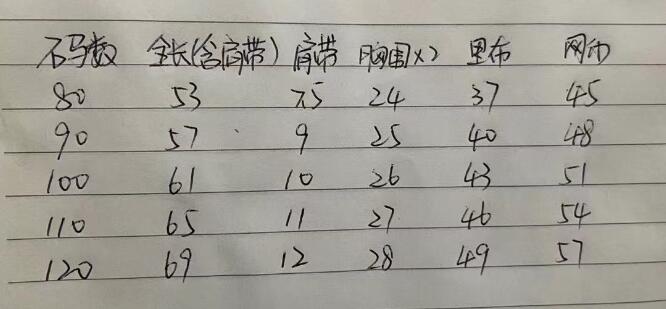 码数 全长(含肩带) 肩带 胸围x2 里布 网布
80 53 7.5 24 37 45
90 57 9 25 40 48
100 61 10 26 43 51
110 65 11 27 46 54
120 69 12 28 49 57